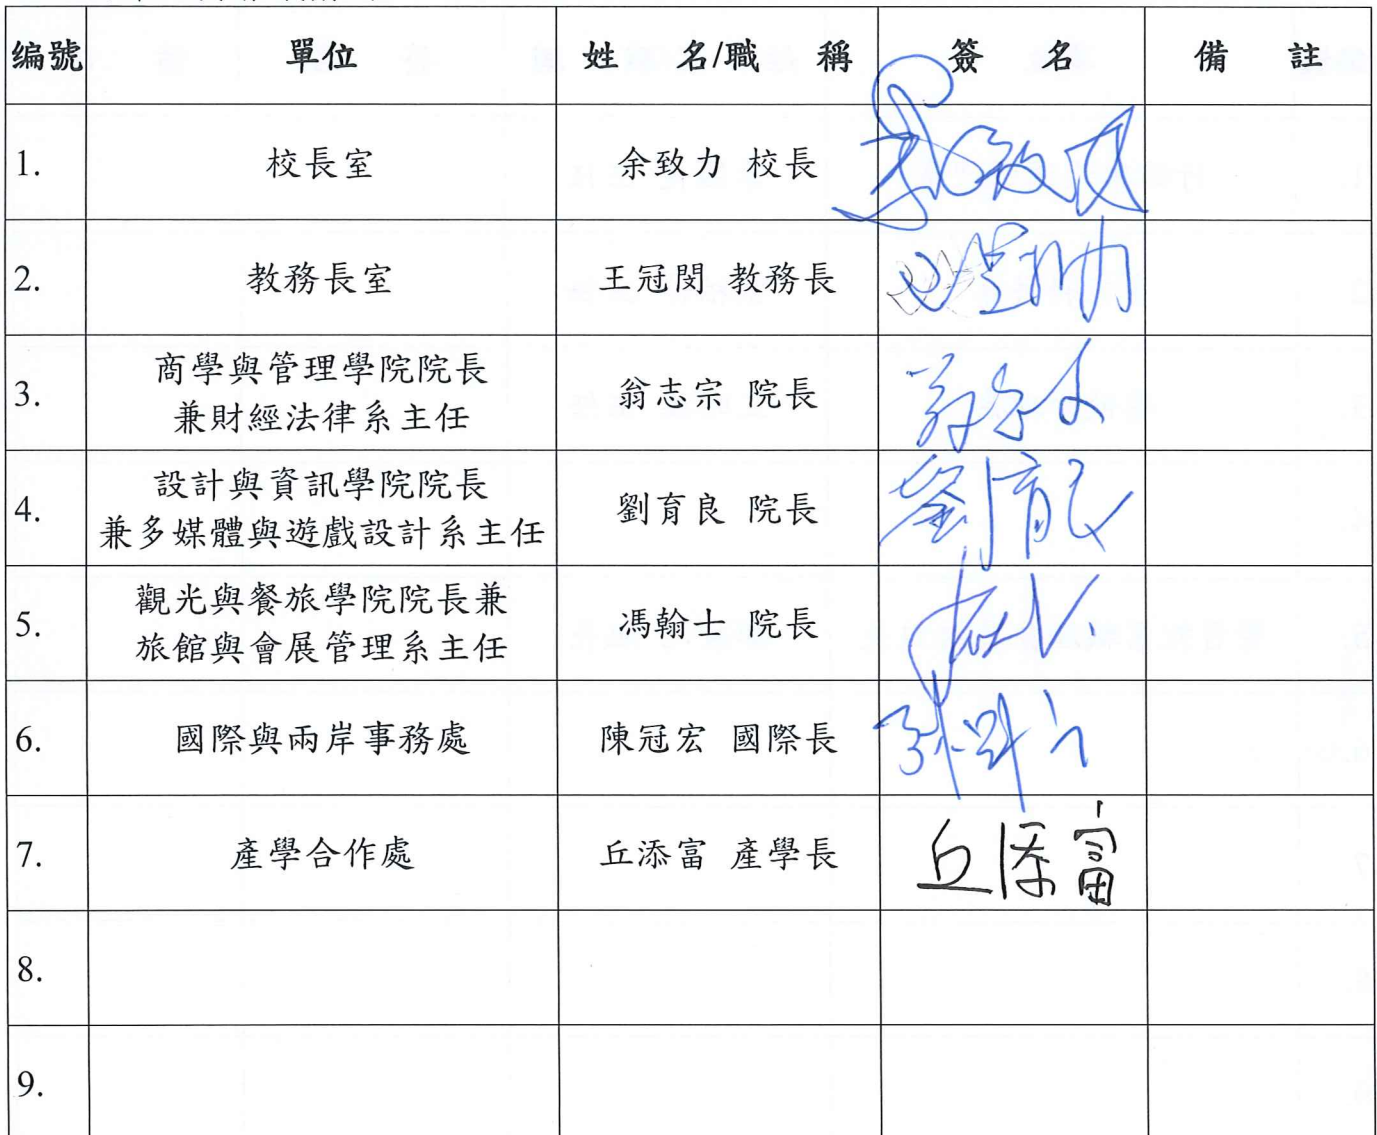 編號 單位 姓 名/職 稱 簽 名 備 註
1. 校長室 余致力 校長
2. 教務長室 王冠閔 教務長
3. 商學與管理學院院長
兼財經法律系主任 翁志宗 院長
4. 設計與資訊學院院長
兼多媒體與遊戲設計系主任 劉育良 院長
5. 觀光與餐旅學院院長兼
旅館與會展管理系主任 馮翰士 院長
6. 國際與兩岸事務處 陳冠宏 國際長
7. 產學合作處 丘添富 產學長 丘添富
8.
9.